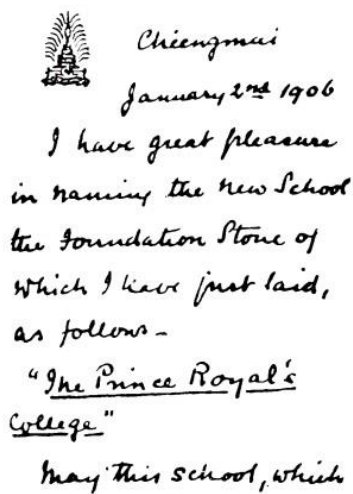 Chiengmai
January 2nd 1906
I have great pleasure
in naming the new School
the Foundation Stone of
which I have just laid,
as follows -
"The Prince Royal's
College"
May this school, which